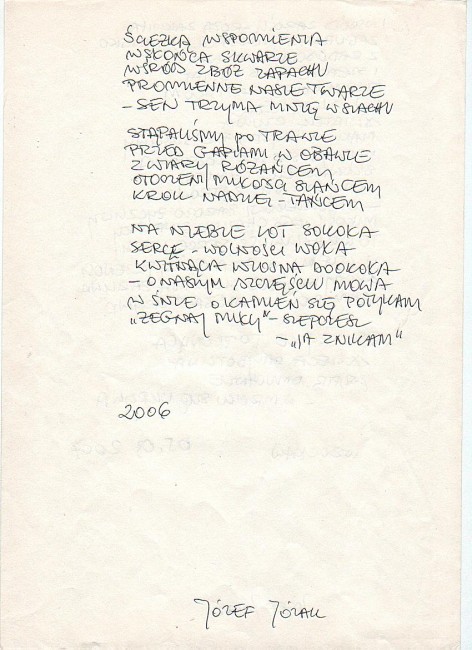 ŚCIEŻKĄ WSPOMNIENIA
W SŁOŃCA SKWARZE
WŚRÓD ZBÓŻ ZAPACHU
PROMIENNE NASZE TWARZE
– SEN TRZYMA MNIE W SZACHU
STĄPALIŚMY PO TRAWIE
PRZED GAPIAMI W OBAWIE
Z WIARY RÓŻAŃCEM
OTOCZENI MIŁOŚCIĄ SŁAŃCEM
KROK NADZIEI – TAŃCEM
NA NIEBIE LOT SOKOŁA
SERCE – WOLNOŚCI WOŁA
KWITNĄCA WIOSNA DOOKOŁA
– O NASZYM SZCZĘŚCIU MOWA
W ŚNIE O KAMIEŃ SIĘ POTYKAM
„ŻEGNAJ MIŁY" – SZEPCZESZ
– „JA ZNIKAM"
2006
JÓZEF